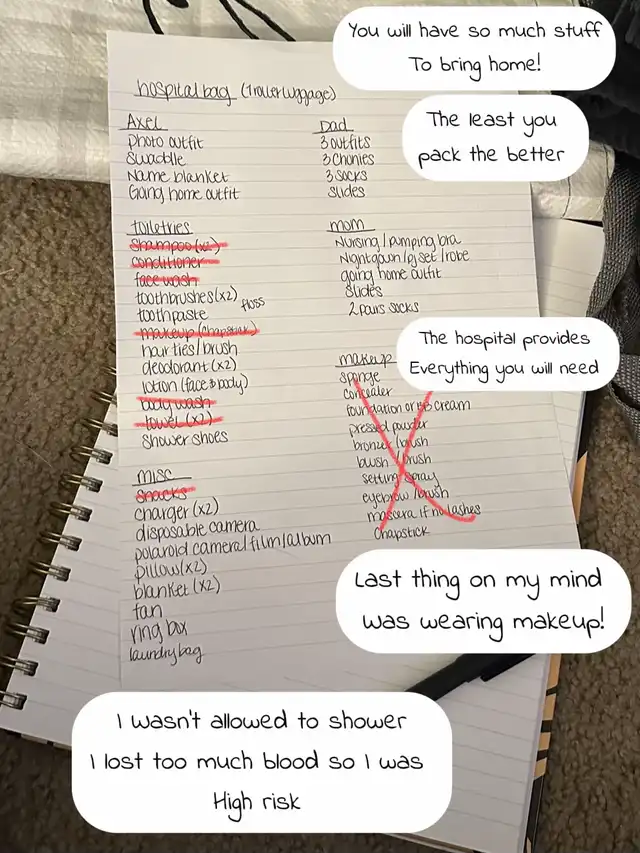 You will have so much stuff
To bring home!
The least you
pack the better
hospital bag (1 roller luggage)
Axel
Photo outfit
Swaddle
Name blanket
Going home outfit
Dad
3 outfits
3 chonies
3 socks
Slides
toiletries
shampoo (x2)
conditioner
face wash
toothbrushes (x2)
floss
toothpaste
makeup (chapstick)
hair ties/brush
deodorant (x2)
lotion (face & body)
body wash
towel (x2)
Shower shoes
mom
Nursing/pumping bra
Nightgown/pj set/robe
going home outfit
Slides
2 pairs socks
The hospital provides
Everything you will need
makeup
sponge
concealer
foundation or BB cream
pressed powder
bronzer/brush
blush/brush
setting spray
eyebrow/brush
mascara if no lashes
Chapstick
misc
snacks
charger (x2)
disposable camera
polaroid camera/film/album
pillow (x2)
blanket (x2)
fan
ring box
laundry bag
Last thing on my mind
was wearing makeup!
I wasn't allowed to shower
I lost too much blood so I was
High risk